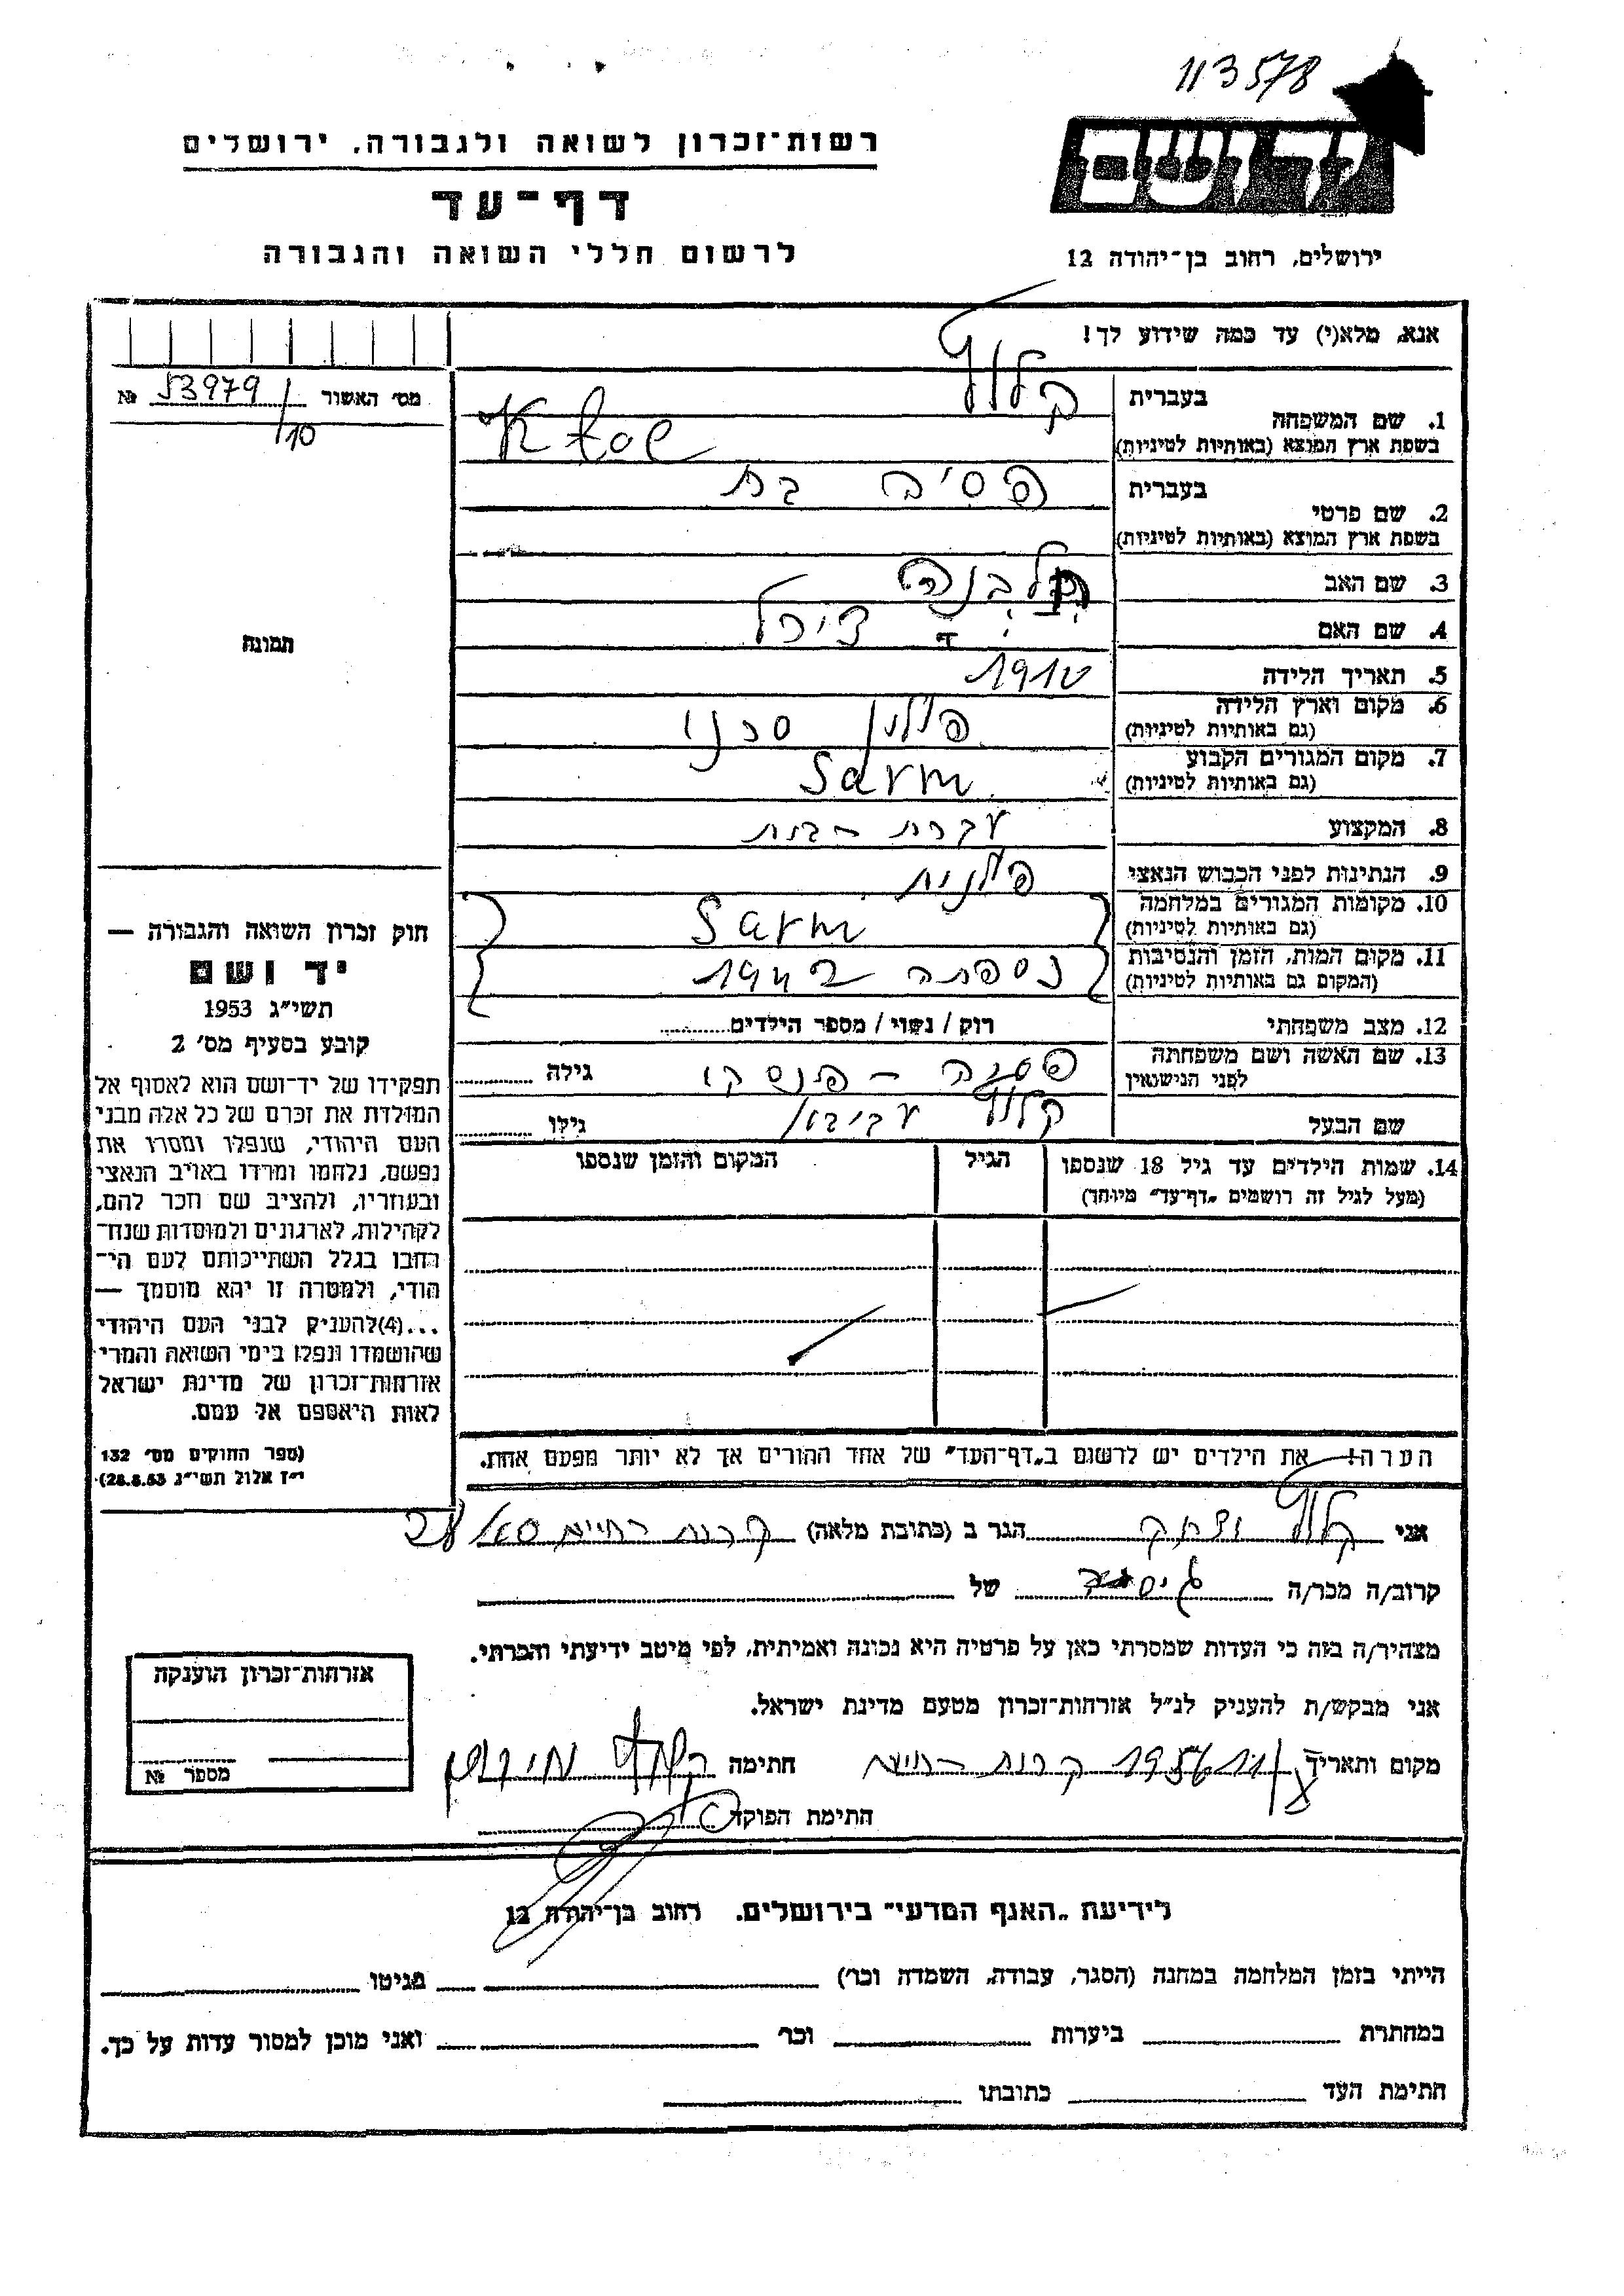 113578
יד ושם
רשות־זכרון לשואה ולגבורה, ירושלים
דף־עד
לרשום חללי השואה והגבורה
ירושלים, רחוב בן־יהודה 12
אנא, מלא(י) עד כמה שידוע לך!
מס׳ האשור 53979 №
/10
תמונה
1. שם המשפחה
בעברית
בשפת ארץ המוצא (באותיות לטיניות)
2. שם פרטי
בעברית
בשפת ארץ המוצא (באותיות לטיניות)
3. שם האב
4. שם האם
5. תאריך הלידה
6. מקום וארץ הלידה
(גם באותיות לטיניות)
פולין
7. מקום המגורים הקבוע
(גם באותיות לטיניות)
Sarm
8. המקצוע
עקרת - בית
9. הנתינות לפני הכבוש הנאצי
פולנית
10. מקומות המגורים במלחמה
(גם באותיות לטיניות)
Sarm
11. מקום המות, הזמן והנסיבות
(המקום גם באותיות לטיניות)
נספתה ב 1942
12. מצב משפחתי
רוק / נשוי / מספר הילדים
13. שם האשה ושם משפחתה
לפני הנישואין
גילה
שם הבעל
גילו
14. שמות הילדים עד גיל 18 שנספו
(מעל לגיל זה רושמים „דף־עד״ מיוחד)
הגיל
המקום והזמן שנספו
הערה: את הילדים יש לרשום ב„דף־העד״ של אחד ההורים אך לא יותר מפעם אחת.
חוק זכרון השואה והגבורה —
יד ושם
תשי״ג 1953
קובע בסעיף מס׳ 2
תפקידו של יד־ושם הוא לאסוף אל
המולדת את זכרם של כל אלה מבני
העם היהודי, שנפלו ומסרו את
נפשם, נלחמו ומרדו באויב הנאצי
ובעוזריו, ולהציב שם וזכר להם,
לקהילות, לארגונים ולמוסדות שנח־
רבו בגלל השתייכותם לעם הי־
הודי, ולמטרה זו יהא מוסמך —
...(4)להעניק לבני העם היהודי
שהושמדו ונפלו בימי השואה והמרי
אזרחות־זכרון של מדינת ישראל
לאות היאספם אל עמם.
(ספר החוקים מס׳ 132
י״ז אלול תשי״ג 28.8.53)
אני הגר ב (כתובת מלאה) קרית חיים
קרוב/ה מכר/ה גיסה של
מצהיר/ה בזה כי העדות שמסרתי כאן על פרטיה היא נכונה ואמיתית, לפי מיטב ידיעתי והכרתי.
אני מבקש/ת להעניק לנ״ל אזרחות־זכרון מטעם מדינת ישראל.
מקום ותאריך קרית חיים חתימה
חתימת הפוקד
אזרחות־זכרון הוענקה
מספר №
לידיעת „האגף המדעי״ בירושלים. רחוב בן־יהודה 12
הייתי בזמן המלחמה במחנה (הסגר, עבודה, השמדה וכו׳) בגיטו
במחתרת ביערות וכו׳ ואני מוכן למסור עדות על כך.
חתימת העד כתובתו